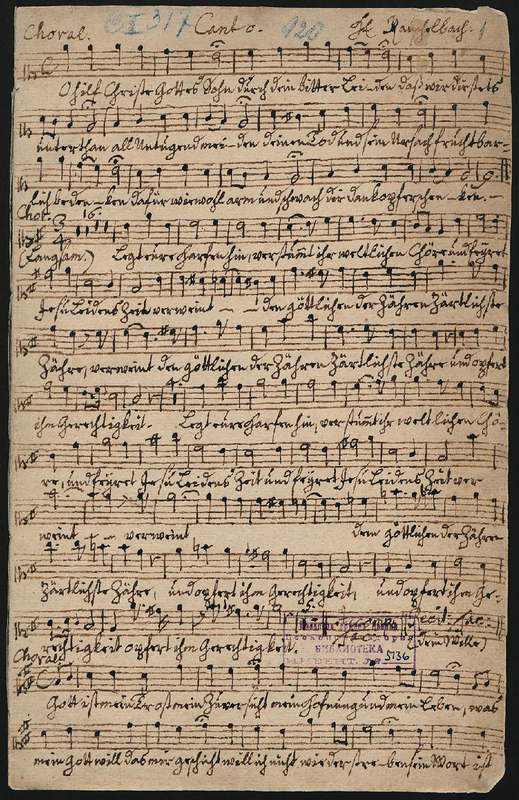 Choral. Canto.
O hilf Christe Gottes Sohn durch dein bitter Leiden daß wir dir stets
unterthan all Untugend meiden deinen Tod und sein Ursach fruchtbar-
lich bedenken dafür wiewohl arm und schwach dir dankopfer schenken.
Chor. 16.
(Langsam.) Legt eure Harfen hin, verstummt ihr weltlichen Chöre und feyret
Jesu Leidens Zeit verweint - - den göttlichen der Zähren zärtlichste
Zähre, verweint den göttlichen der Zähren zärtlichste Zähre und opfert
ihm Gerechtigkeit. Legt eure Harfen hin, verstummt ihr weltlichen Chö-
re, und feyret Jesu Leidens Zeit und feyret Jesu Leidens Zeit ver
weint - - verweint dem göttlichen der Zähren
zärtlichste Zähre, und opfert ihm Gerechtigkeit, und opfert ihm Ge-
Recit: tac:
rechtigkeit opfert ihm Gerechtigkeit.
(dein Wille)
БИБЛИОТЕКА
5736
Choral.
Gott ist mein Trost mein Zuversicht mein Hofnung und mein Leben, was
mein Gott will das mir geschicht will ich nicht wiederstreben sein Wort ist